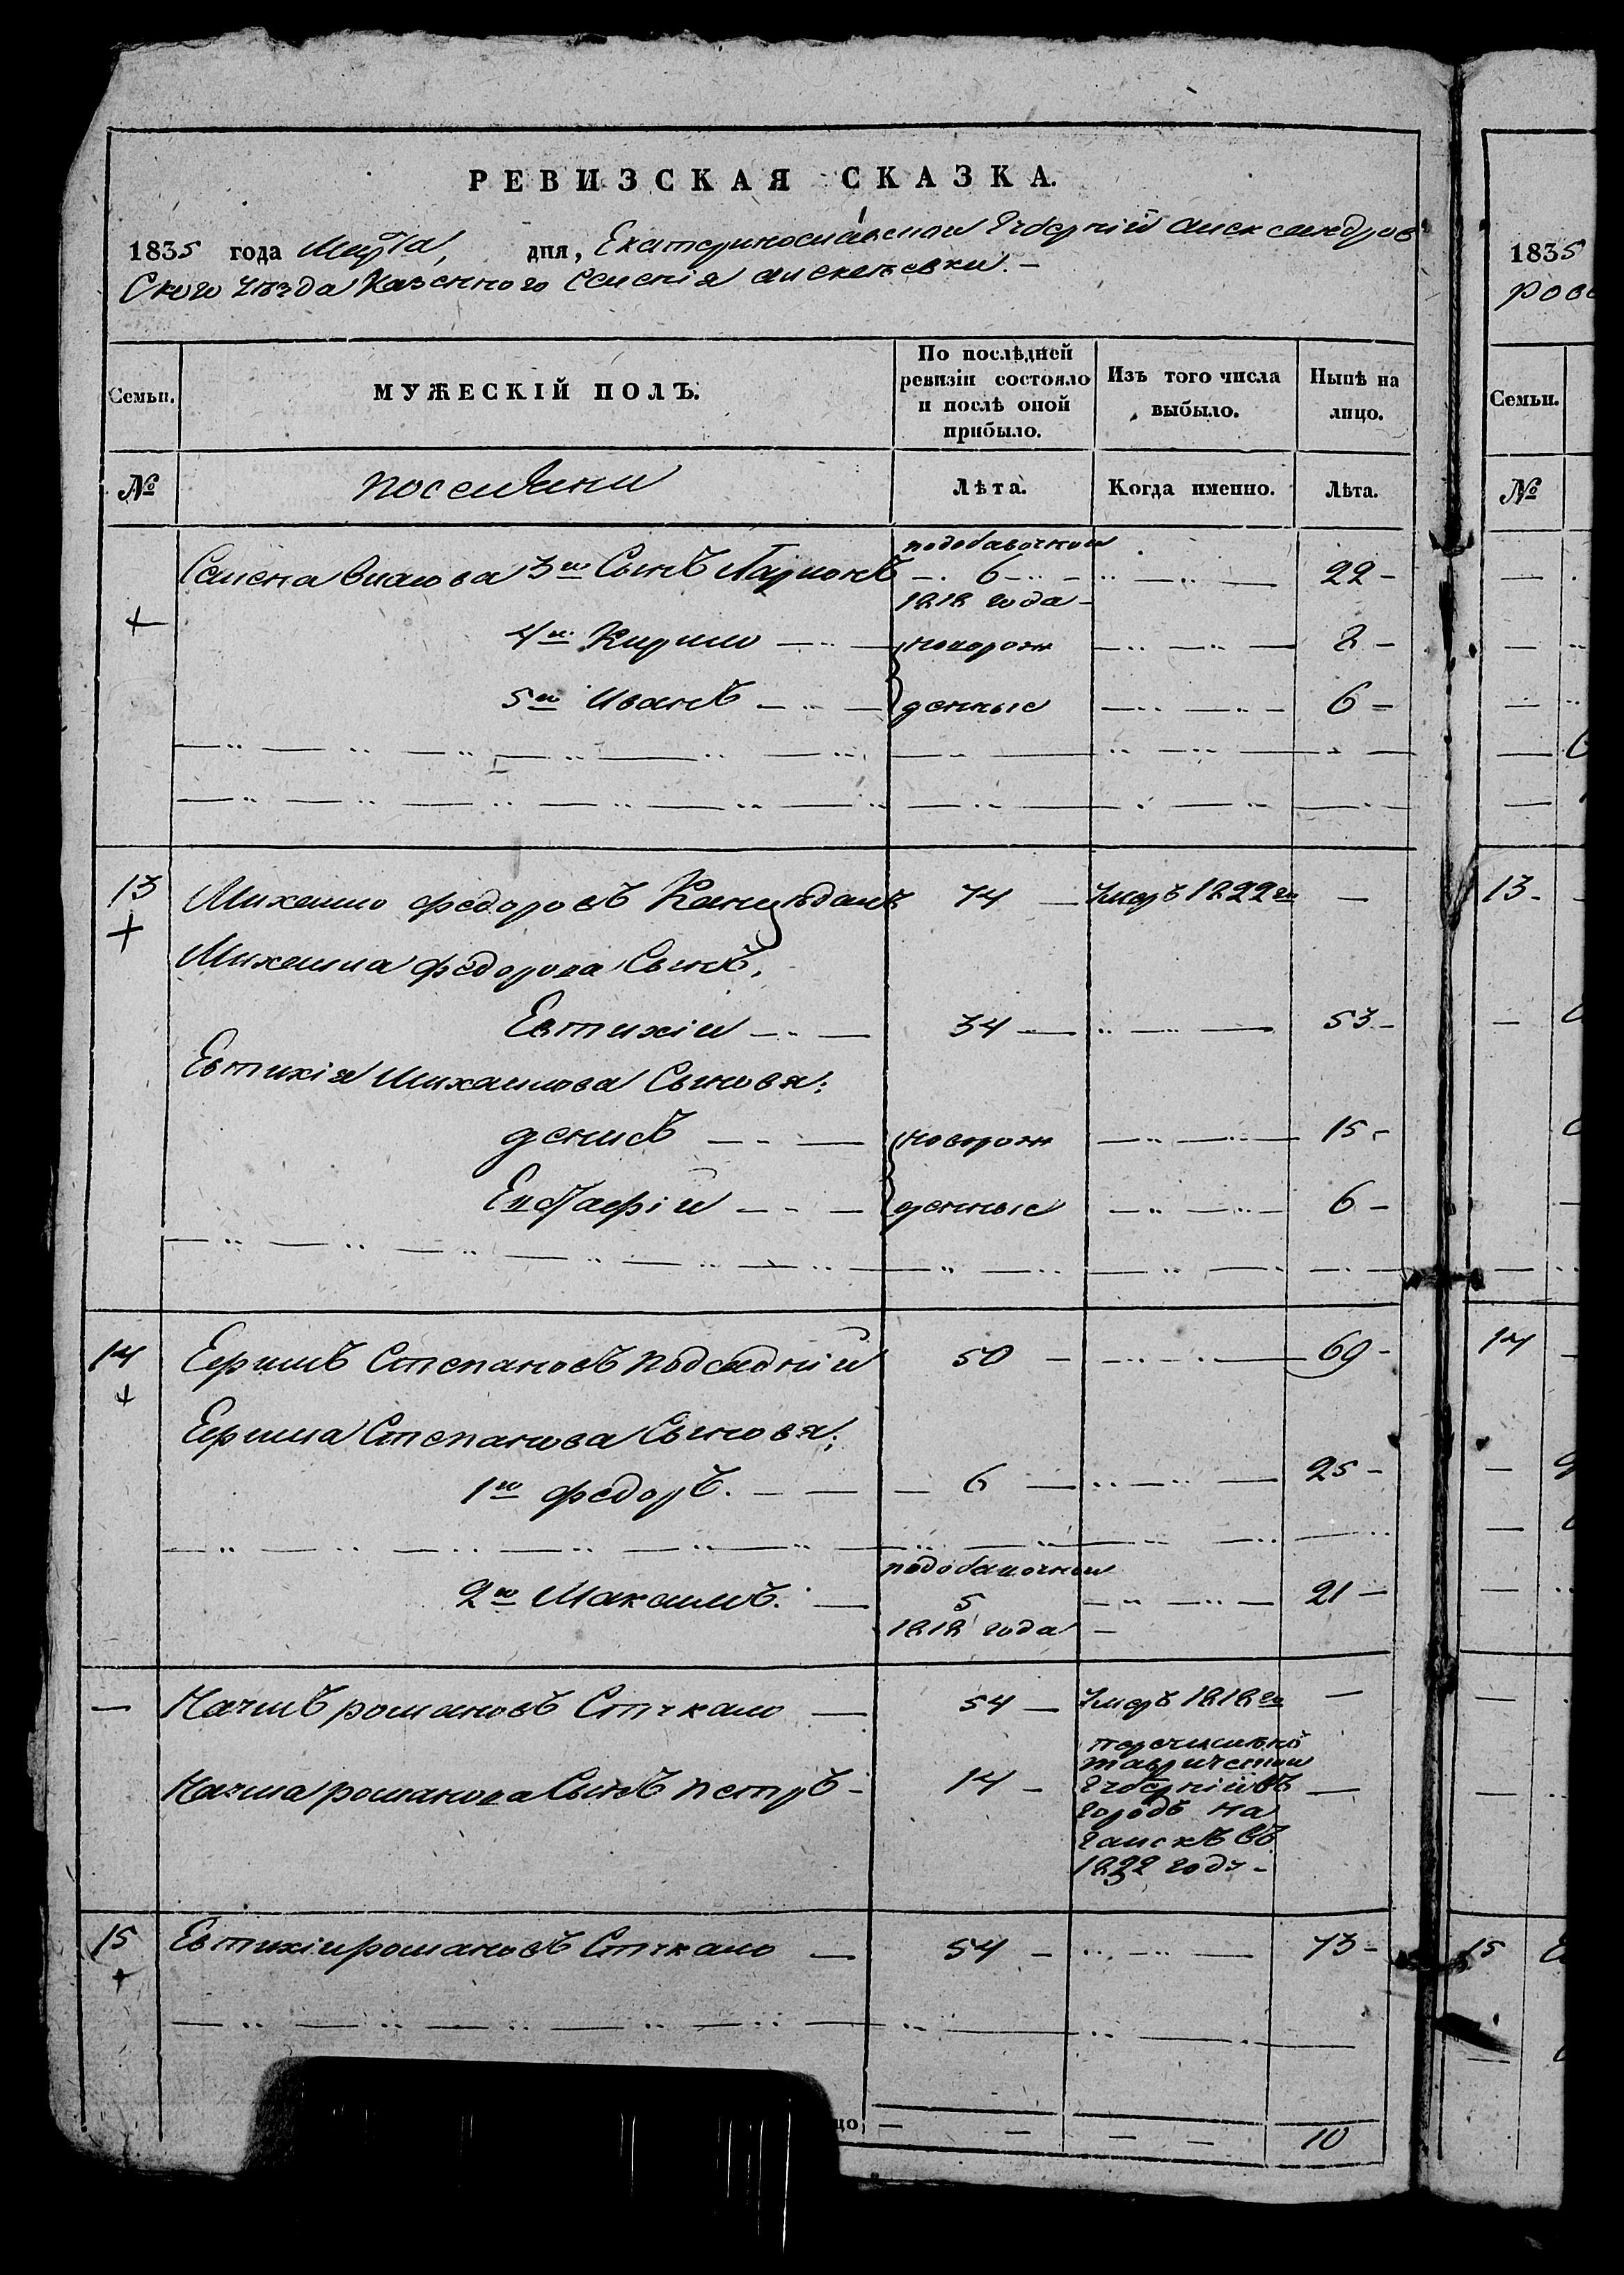 РЕВИЗСКАЯ СКАЗКА.
1835 года Марта, дня, Екатеринославской Губернiй Александров
Ского уѣзда Казенного Селенiя Алексѣевки. –
1835
рово
Семьи.
МУЖЕСКIЙ ПОЛЪ.
По послѣдней ревизiи состояло и послѣ оной прибыло.
Изъ того числа выбыло.
Нынѣ на лицо.
Семьи.
№
поселяни
Лѣта.
Когда именно.
Лѣта.
№
Семена Власова 3й Сынъ Ларионъ
подобавочной
6
1818 года
22
4й Кирило
новорож
8
5й Иванъ
денные
6
13
Михайло Федоровъ
74
Умеръ 1822го
13
Михайла Федорова Сынъ,
Евтихiй
34
53
Евтихiя Михайлова Сыновя:
Денисъ
новорож
15
Евстафiй
денные
6
14
Ефимъ Степановъ Подседнiй
50
69
14
Ефима Степанова Сыновя:
1й Федоръ.
6
25
2й Максимъ.
подобавочной
5
1818 года
21
Наумъ Романовъ Стукало
54
Умеръ 1818го
Наума Романова Сынъ Петръ
14
перечисленъ
таврической
Губернiи въ
городъ Но
гайскъ въ
1832 году
15
Евтихiй Романовъ Стукало
54
73
15
цо
10